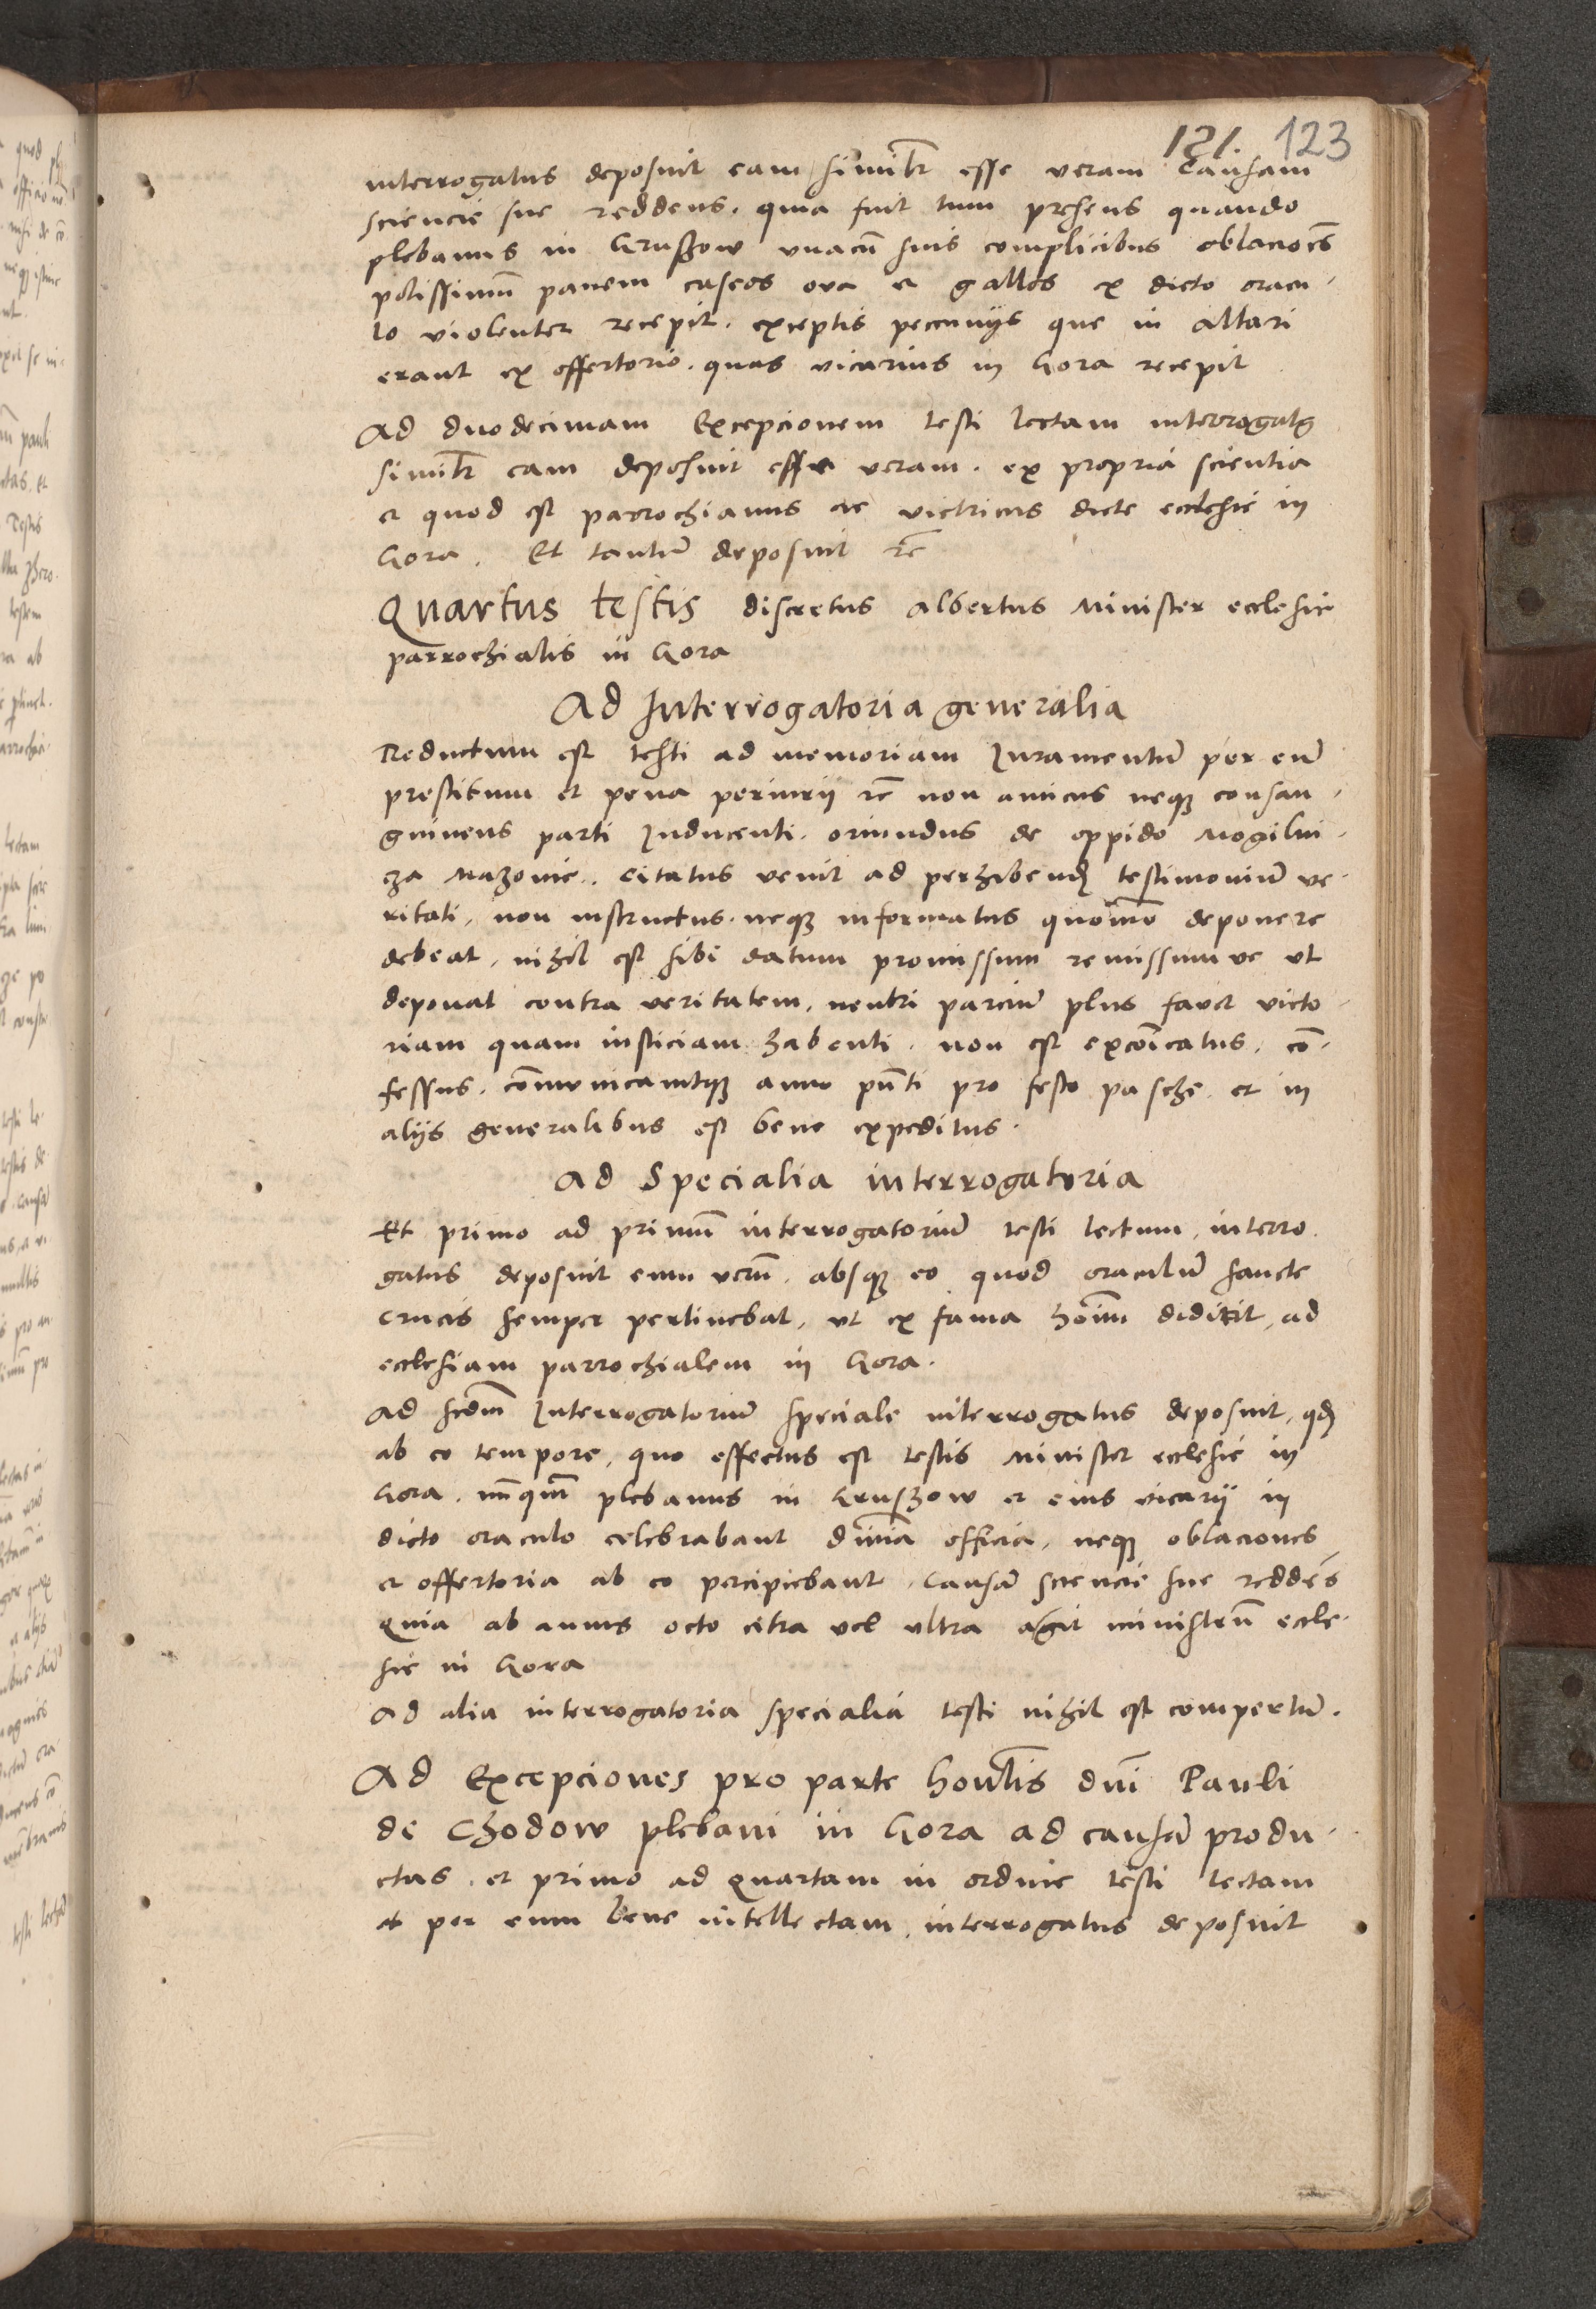 121. 123
interrogatus deposuit eam simil̄r esse veram Causam
sciencie sue reddens. quia fuit tum presens quando
plebanus in Gruszow vnacū suis complicibus oblacioēs
potissimū panem caseos ova et gallos ex dicto oracu-
lo violenter recepit. exceptis peccunijs que in altari
erant ex offertorio. quas vicarius in Gora recepit
Ad duodecimam Excepcionem testi lectam interrogatꝰ
simil̄r eam deposuit esse veram. ex propria scientia
et quod est parrochianus ac victricus dicte ecclesie in
Gora. Et tantū deposuit rc̄
Quartus testis discretus Albertus Minister ecclesie
parrochialis in Gora
Ad Interrogatoria generalia
Reductum est testi ad memoriam Iuramentū per eū
prestitum et pena periurii rc̄ non amicus neqꝫ consan-
guineus parti Inducenti. oriundus de oppido Mogilni-
cza Mazovie. citatus venit ad perhibendꝫ testimoniū ve-
ritati, non instructus. neqꝫ informatus quōmō deponere
debeat, nihil est sibi datum promissum remissum ve vt
deponat contra veritatem, neutri parciū plus favet victo-
riam quam iusticiam habenti. non est excōīcatus, cō-
fessus. cōmunicauitqꝫ anno pn̄ti pro festo pasche. et in
alijs generalibus est bene expeditus.
Ad Specialia interrogatoria
Et primo ad primū interrogatoriū testi lectum, interro-
gatus deposuit eum verū. absqꝫ eo quod oraculū sancte
crucis semper pertinebat, vt ex fama hoīm didicit, ad
ecclesiam parrochialem in Gora.
Ad scdm̄ Interrogatoriū speciale interrogatus deposuit, qdꝫ
ab eo tempore, quo effectus est testis Minister ecclesie in
Gora. nūquā plebanus in Gruszow et eius vicarij in
dicto oraculo celebrabant diuīa officia, neqꝫ oblaciones
et offertoria ab eo percipiebant. Causā sciencie sue reddēs
Quia ab annis octo citra vel vltra agit ministeriū eccle-
sie in Gora
Ad alia interrogatoria specialia testi nihil est compertū.
Ad Excepciones pro parte honl̄is dn̄i Pauli
de Chodow plebani in Gora ad causā produ-
ctas. et primo ad quartam in ordine testi lectam
et per eum bene intellectam, interrogatus deposuit